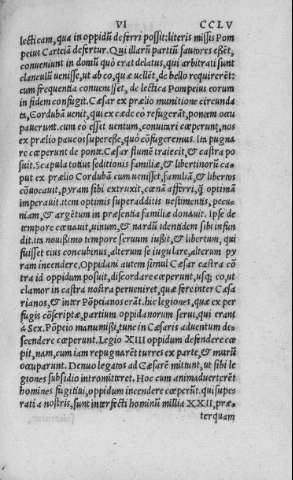 VI CCLV
lecticam, qua in oppidū deferri possit: literis missis Pom
peius Carteiā defertur. Qui illarū partiū fautores eßēt,
conueniunt in domū quò erat delatus, qui arbitrati sunt
clanculū uenisse, ut ab eo, quæ uellēt, de bello requirerēt:
cum frequentia conuenisset, de lectica Pompeius eorum
in fidem confugit. Cæsar ex prælio munitione circunda
ta, Cordubā uenit, qui ex cæde eo refugerāt, pontem occu
pauerunt. cum eò esset uentum, conuitiari cœperunt, nos
ex prælio paucos superesse, quò cōfugeremus. In pugna
re cœperunt de ponte. Cæsar flumē traiecit, & castra po
suit. Scapula totius seditionis familiæ, & libertinorū ca
put ex prælio Cordubā cum uenisset, familiā, & libertos
cōuocauit, pyram sibi extruxit, cœnā afferri, q̃ optimā
imperauit. item optimis supperadditis uestimentis, pecu
niam, & argētum in præsentia familiæ donauit. Ipse de
tempore cœnauit, uinum, & nardū identidem sibi infun
dit. ita nouißimo tempore seruum iußit, & libertum, qui
fuisset eius concubinus, alterum se iugulare, alterum py
ram incendere. Oppidani autem simul Cæsar castra cō
tra id oppidum posuit, discordare cœperunt, usq; eo, ut
clamor in castra nostra perueniret, quæ fereinter Cæsa
rianos, & inter Pōpeianos erāt. hic legiones, quæ ex per
fugis cōscriptæ, partium oppidanorum serui, qui erant
à Sex. Pōpeio manumißi, tunc in Cæsaris aduentum de=
scendere cœperunt. Legio XIII oppidum defendere cœ
pit, nam, cum iam repugnarēt turres ex parte, & murū
occuparunt. Denuo legatos ad Cæsarē mittunt, ut sibi le
giones subsidio intromitteret. Hoc cum animaduerterēt
homines fugitiui, oppidum incendere cœperūt. qui supe=
rati a nostris, sunt interfecti hominū millia XXII, præ=
terquam